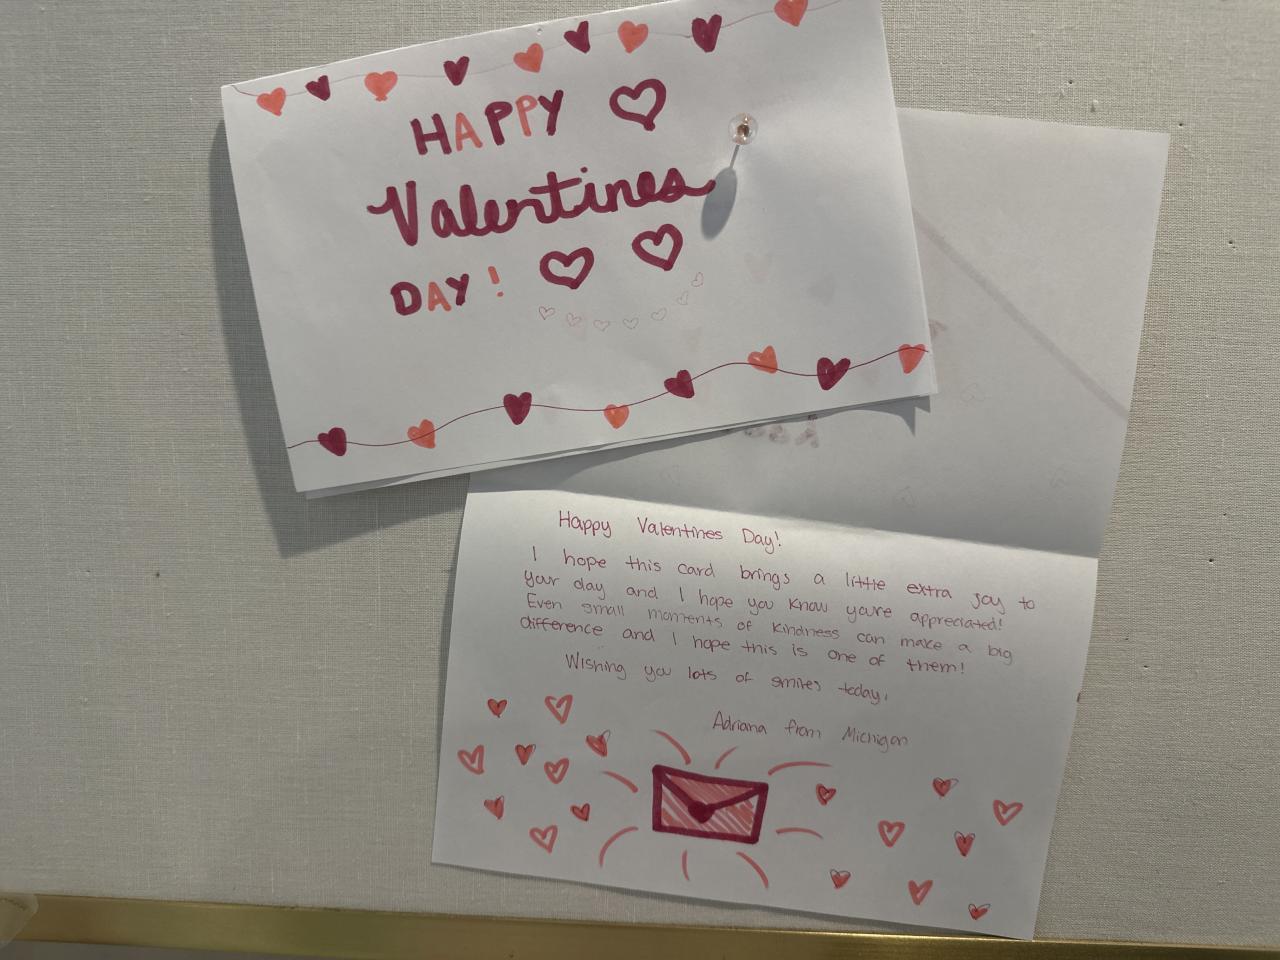 HAPPY
Valentines
DAY!
Happy Valentines Day!
I hope this card brings a little extra joy to
your day and I hope you know you're appreciated!
Even small moments of kindness can make a big
difference and I hope this is one of them!
Wishing you lots of smiles today,
Adriana from Michigan